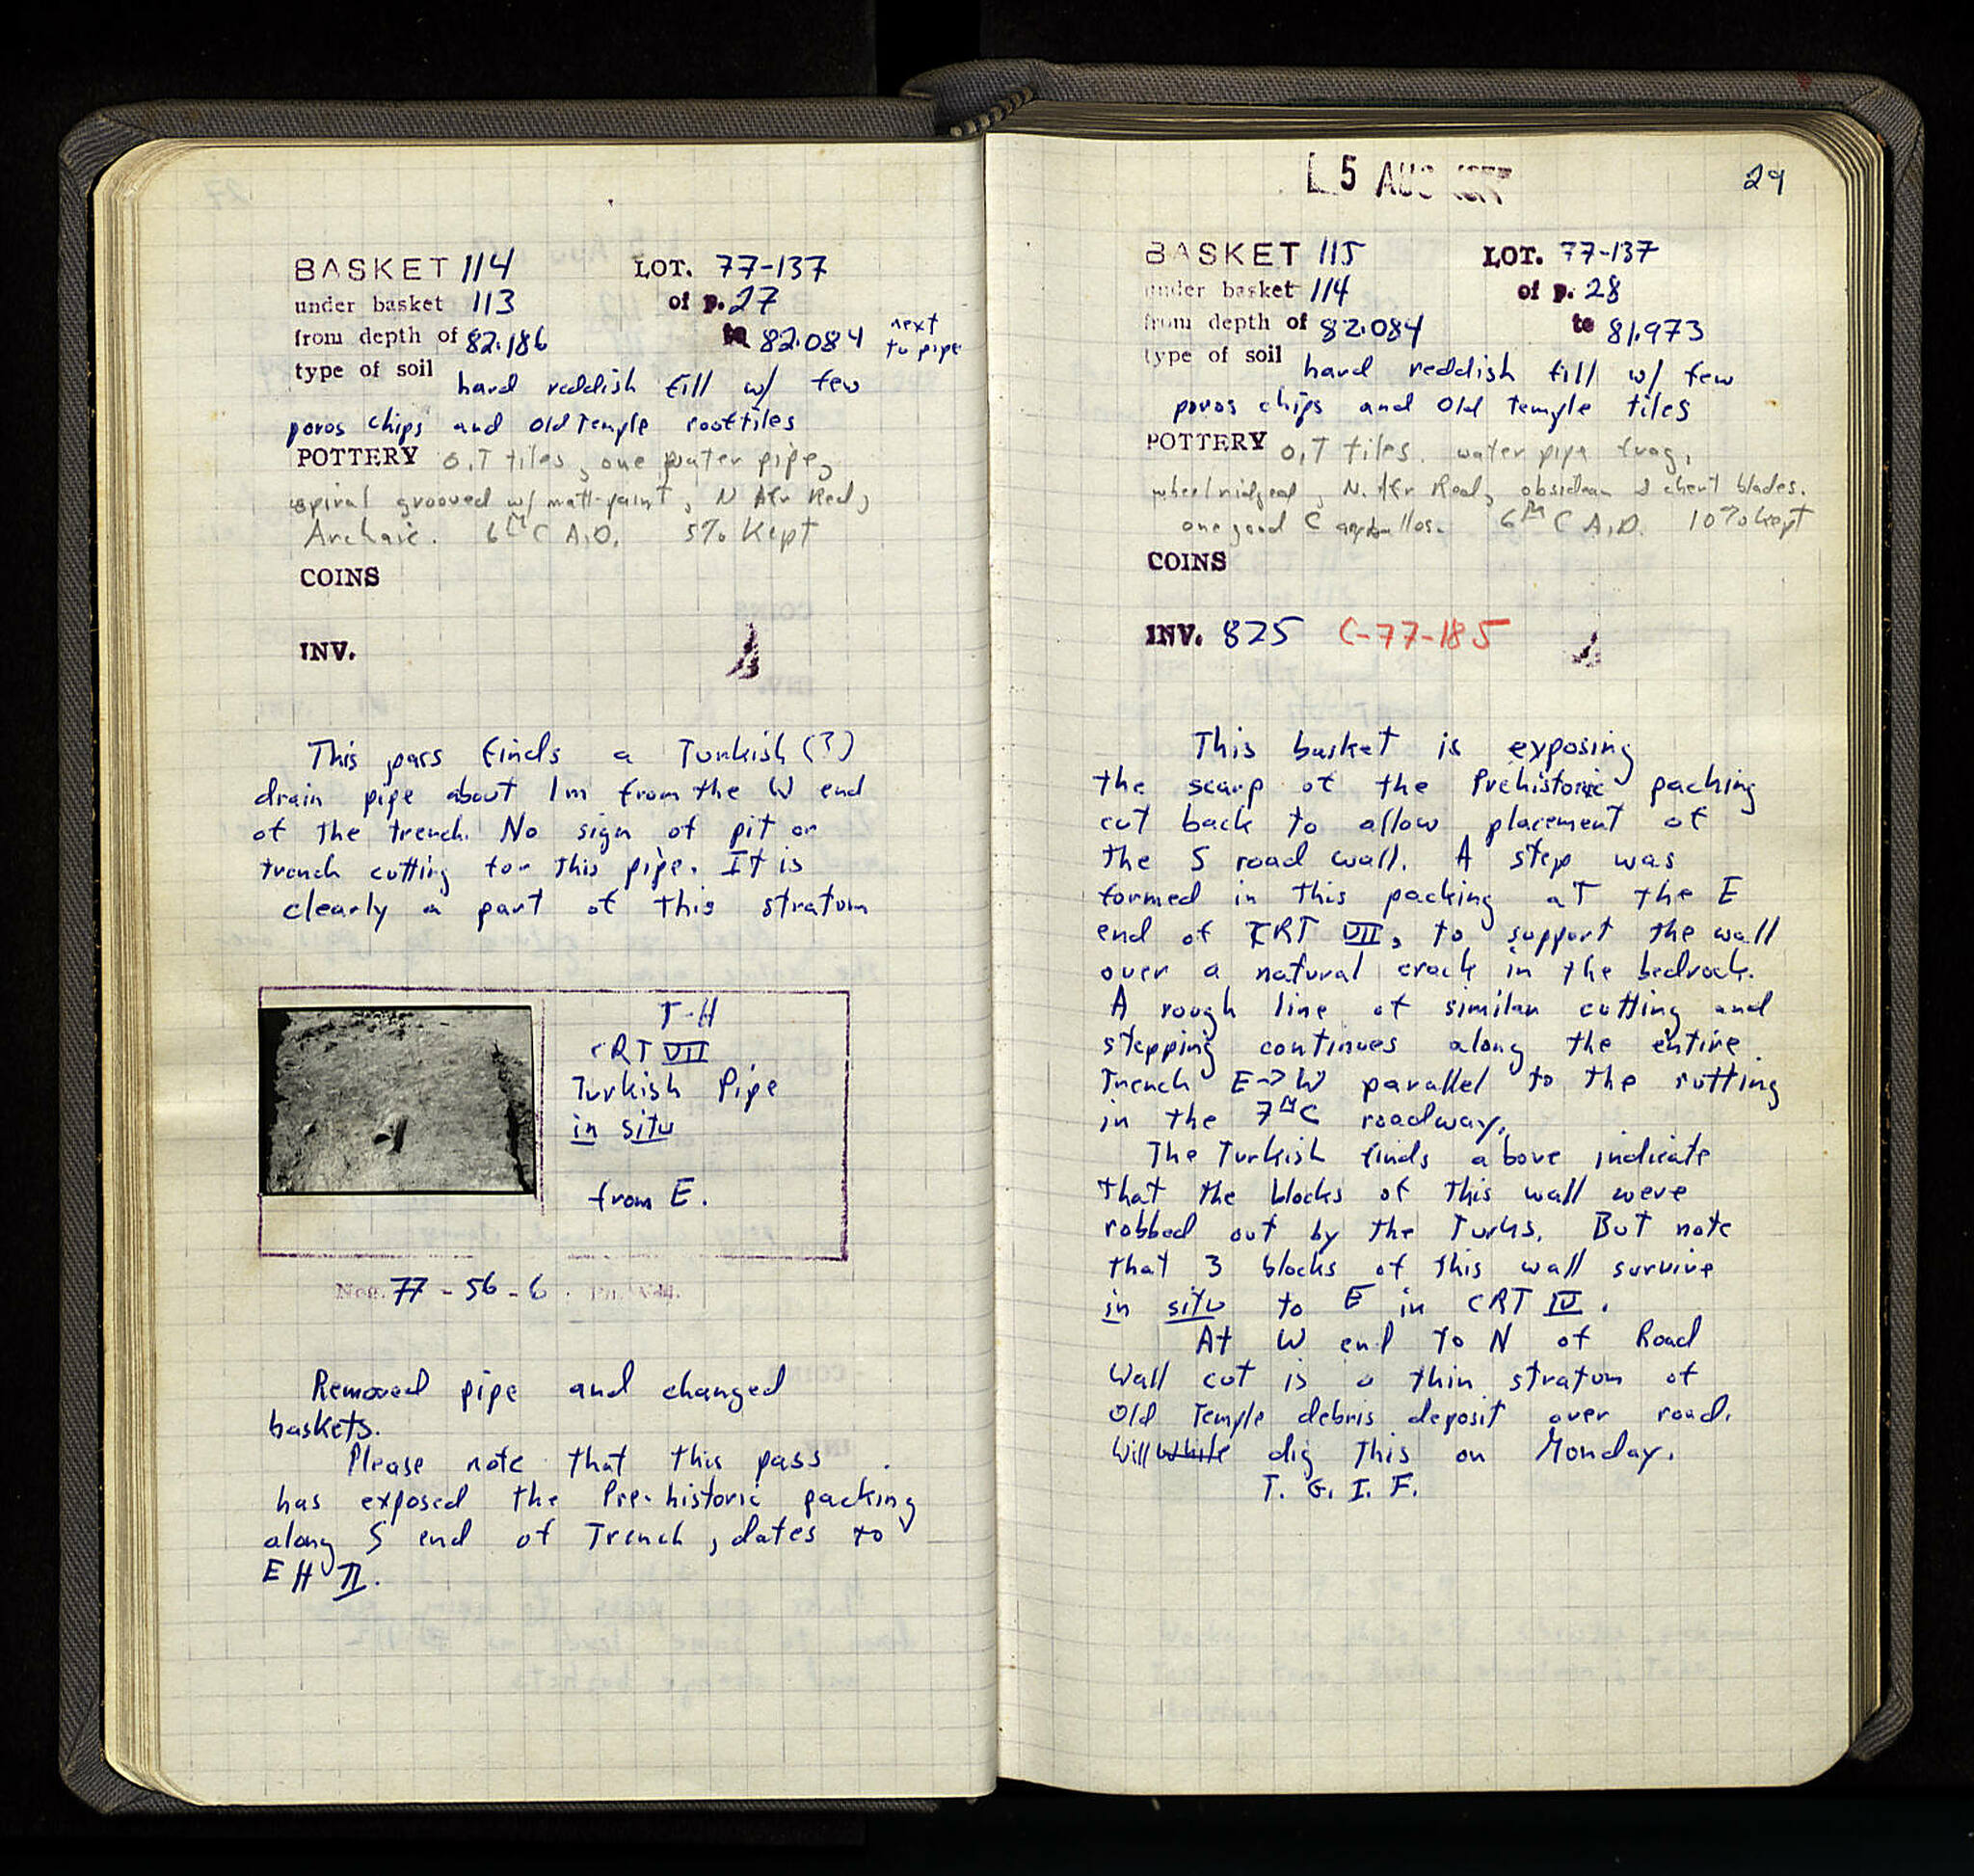 BASKET 114 LOT. 77-137
under basket 113 of p. 27
from depth of 82.186 to 82.084 next to pipe
type of soil hard reddish fill w/ few
poros chips and Old Temple rooftiles
POTTERY O.T tiles, one water pipe,
spiral grooved w/ matt-paint, N Afr Red,
Archaic. 6th C A.D. 5% Kept
COINS
INV.
This pass finds a Turkish (?)
drain pipe about 1m from the W end
of the trench. No sign of pit or
trench cutting for this pipe. It is
clearly a part of this stratum
T-H
CRT VII
Turkish Pipe
in situ
from E.
Neg. 77-56-6
Removed pipe and changed
baskets.
Please note that this pass
has exposed the Pre-historic packing
along S end of Trench, dates to
EH II.
5 AUG 1977
29
BASKET 115 LOT. 77-137
under basket 114 of p. 28
from depth of 82.084 to 81.973
type of soil hard reddish fill w/ few
poros chips and Old Temple tiles
POTTERY O.T tiles. water pipe frag,
wheelridged, N. Afr Red, obsidian & chert blades.
one good C 6th C A.D. 10% kept
COINS
INV. 825 C-77-185
This basket is exposing
the scarp of the Prehistoric packing
cut back to allow placement of
the S road wall. A step was
formed in this packing at the E
end of CRT VII, to support the wall
over a natural crack in the bedrock.
A rough line of similar cutting and
stepping continues along the entire
Trench E→W parallel to the rutting
in the 7th C roadway.
The Turkish finds above indicate
that the blocks of this wall were
robbed out by the Turks. But note
that 3 blocks of this wall survive
in situ to E in CRT IV.
At W end to N of Road
Wall cut is a thin stratum of
Old Temple debris deposit over road.
Will while dig This on Monday.
T. G. I. F.